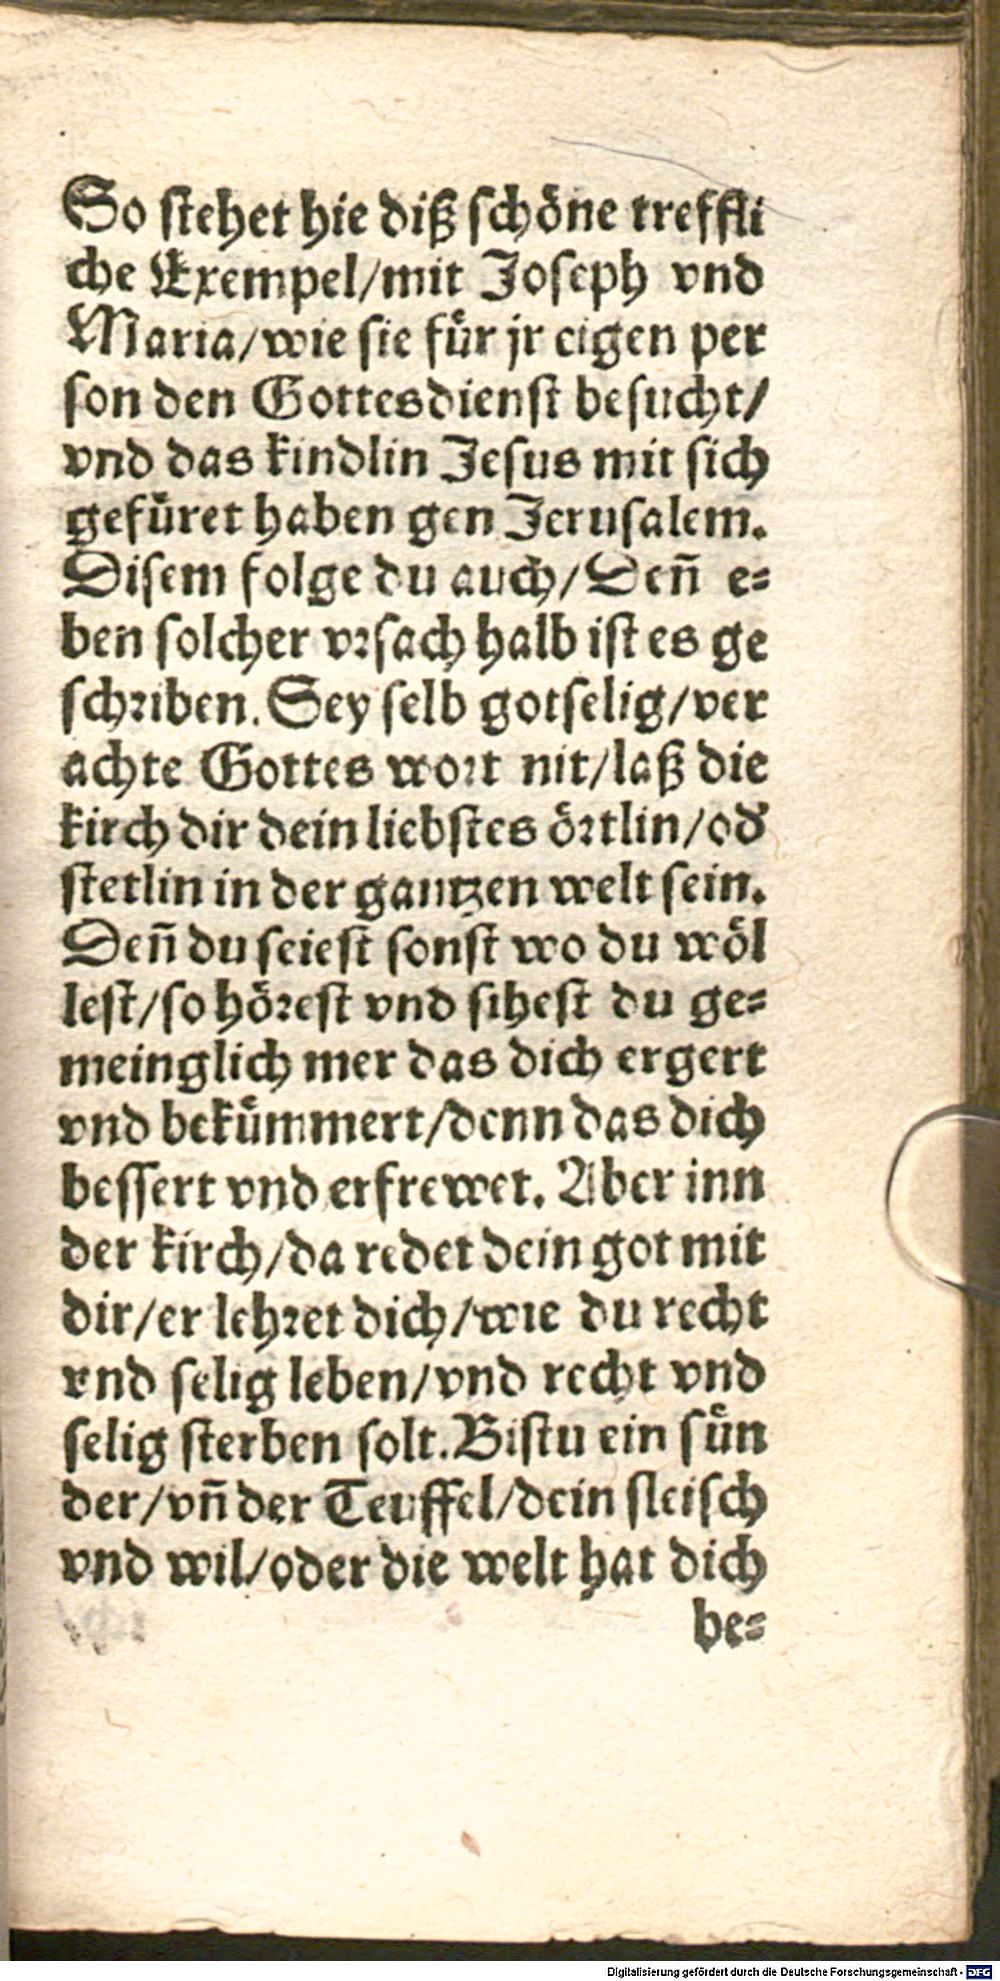 So stehet hie diß schöne treffli
che Exempel/mit Joseph vnd
Maria/wie sie für jr eigen per
son den Gottesdienst besucht/
vnd das kindlin Jesus mit sich
gefüret haben gen Jerusalem.
Disem folge du auch/Deñ e-
ben solcher vrsach halb ist es ge
schriben. Sey selb gotselig/ver
achte Gottes wort nit/laß die
kirch dir dein liebstes örtlin/od
stetlin in der gantzen welt sein.
Deñ du seiest sonst wo du wöl
lest/so hörest vnd sihest du ge-
meinglich mer das dich ergert
vnd bekümmert/denn das dich
bessert vnd erfrewet. Aber inn
der kirch/da redet dein got mit
dir/er lehret dich/wie du recht
vnd selig leben/vnd recht vnd
selig sterben solt. Bistu ein sün
der/vñ der Teuffel/dein fleisch
vnd wil/oder die welt hat dich
be-
Digitalisierung gefördert durch die Deutsche Forschungsgemeinschaft - DFG